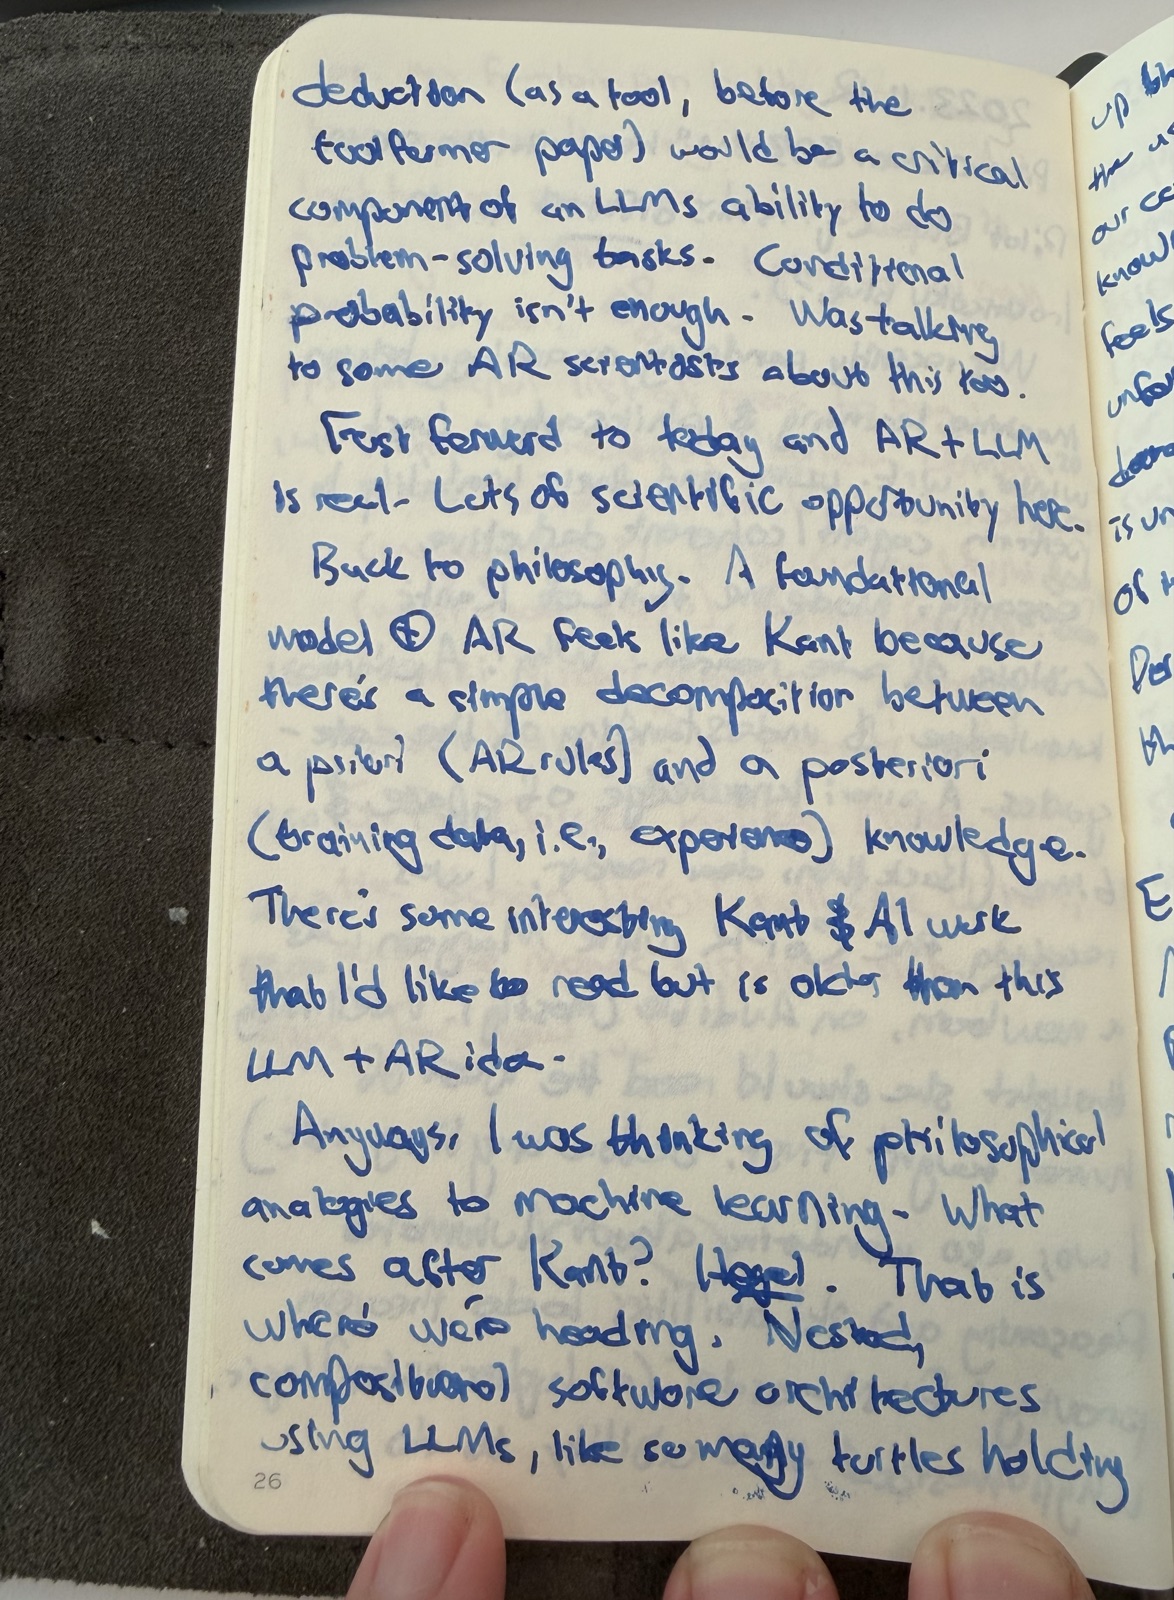 deduction (as a tool, before the
toolformer paper) would be a critical
component of an LLMs ability to do
problem-solving tasks. Conditional
probability isn't enough. Was talking
to some AR scientists about this too.
Fast forward to today and AR+LLM
is real. Lots of scientific opportunity here.
Back to philosophy. A foundational
model ⊕ AR feels like Kant because
there's a simple decomposition between
a priori (AR rules) and a posteriori
(training data, i.e., experience) knowledge.
There's some interesting Kant & AI work
that I'd like to read but is older than this
LLM + AR idea.
Anyways, I was thinking of philosophical
analogies to machine learning. What
comes after Kant? Hegel. That is
where we're heading. Nested,
compositional software architectures
using LLMs, like so many turtles holding
26
up
the
our
feels
is un
of